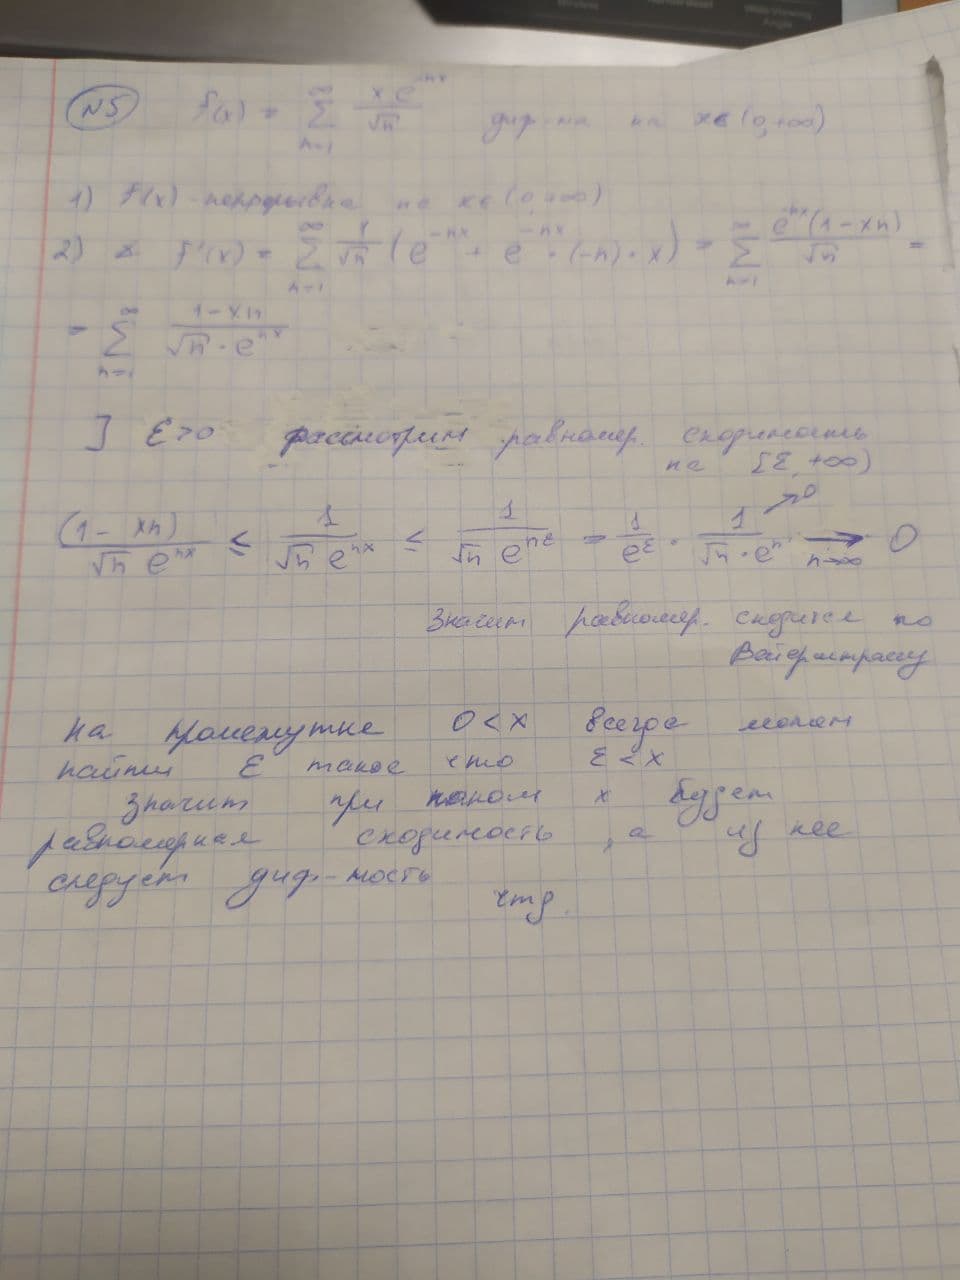 N5 f(x) = ∑_{n=1}^{∞} \frac{x e^{-nx}}{√n} диф-ма на x∈(0,+∞)
1) f(x) - непрерывна на x∈(0,+∞)
2) f'(x) = ∑_{n=1}^{∞} \frac{1}{√n} (e^{-nx} + e^{-nx}·(-n)·x) = ∑_{n=1}^{∞} \frac{e^{-nx}(1-xn)}{√n} =
= ∑_{n=1}^{∞} \frac{1-xn}{√n · e^{nx}}
] ε>0 рассмотрим равномер. сходимость
на [ε, +∞)
\frac{(1-xn)}{√n e^{nx}} ≤ \frac{1}{√n e^{nx}} ≤ \frac{1}{√n e^{nε}} = \frac{1}{e^{ε}} · \frac{1}{√n · e^{n}} ↗0 →_{n→∞} 0
Значит равномер. сходится по
Вейерштрассу
На промежутке 0<x всегда можем
найти ε такое что ε<x
Значит при таком x будет
равномерная сходимость, а из нее
следует диф-мость
чтд.